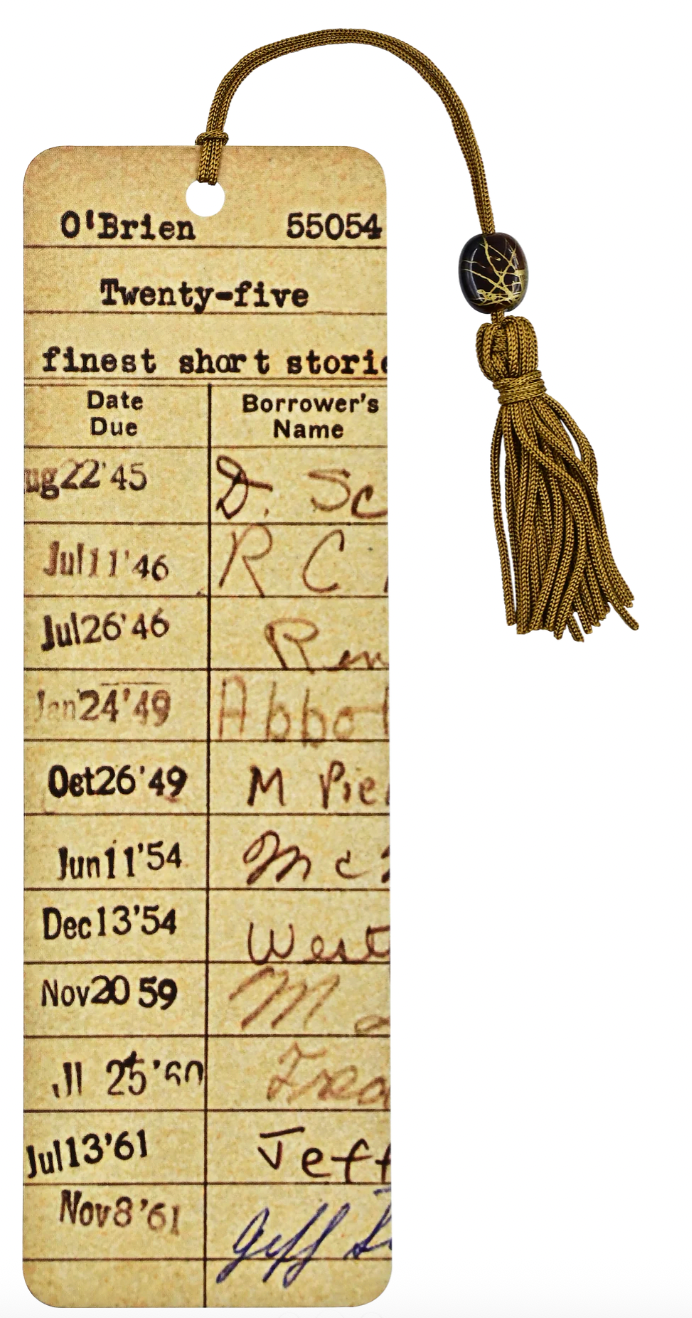 O'Brien 55054
Twenty-five
finest short storie
Date Due
Borrower's Name
ug22'45 D. Sc
Jul11'46 R C
Jul26'46 Ren
Jan24'49 Abbot
Oct26'49 M Pie
Jun11'54 Mc
Dec13'54 West
Nov20 59 M
25'60
Jul13'61 Jeff
Nov8'61 Jeff